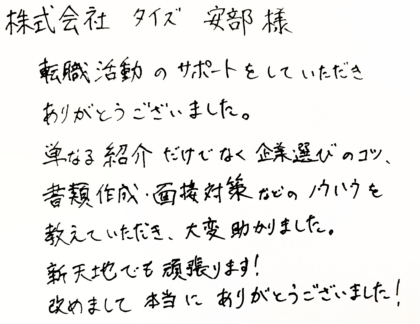 株式会社 タイズ 安部様
転職活動のサポートをしていただき
ありがとうございました。
単なる紹介だけでなく企業選びのコツ、
書類作成・面接対策などのノウハウを
教えていただき、大変助かりました。
新天地でも頑張ります!
改めまして本当にありがとうございました!